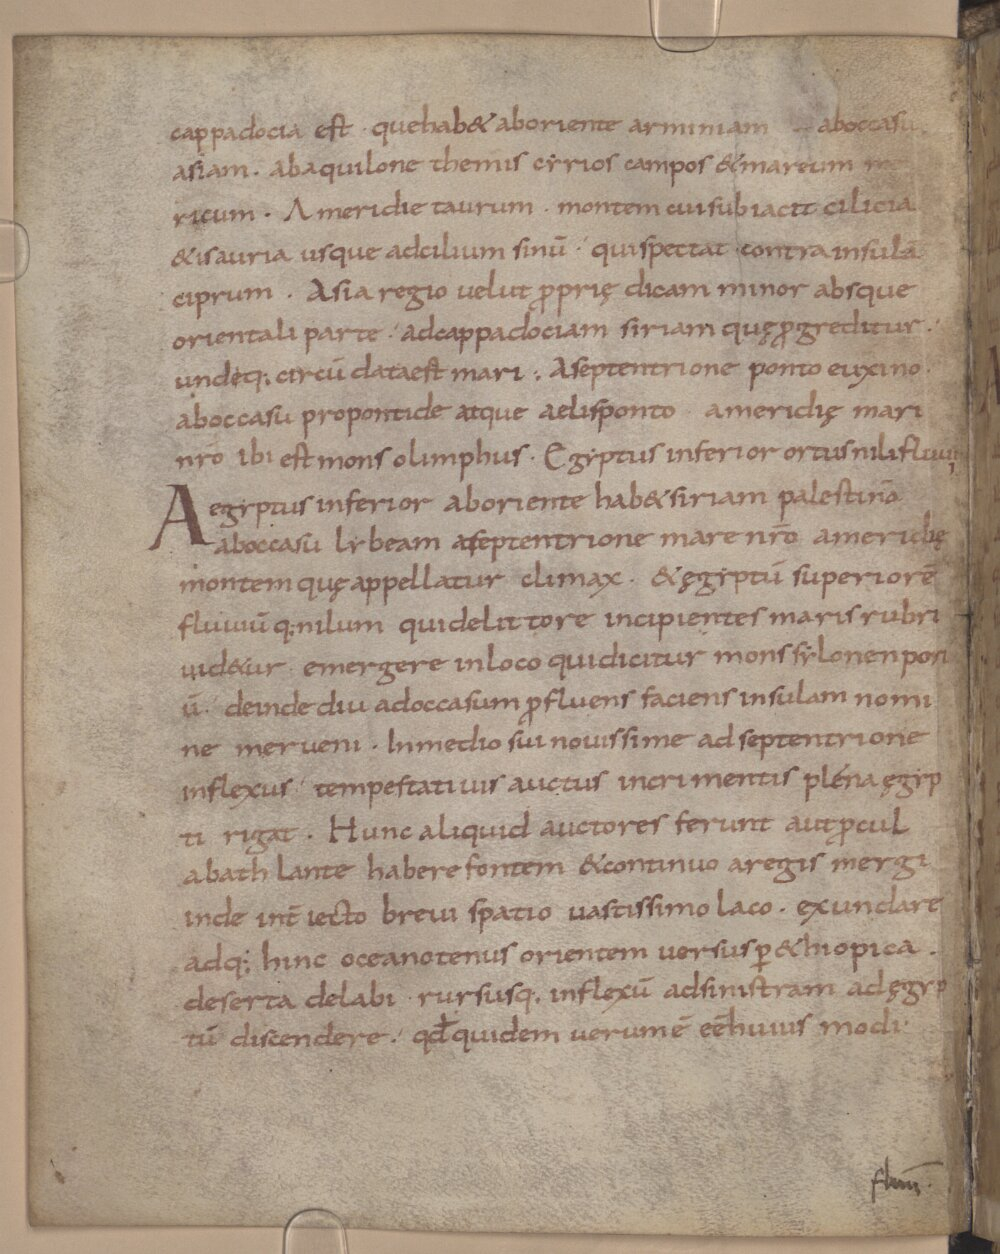 cappadocia est · quehab& aboriente arminiam aboccasu
asiam · abaquilone themis cyrrios campos &mareum
ricum · Ameridie taurum · montem cui subiacit cilicia
&isauria usque adcilium sinū · qui spectat contra insulā
ciprum · Asia regio velut ꝓprię dicam minor absque
orientali parte · adcappadociam siriam quęꝓgreditur ·
undeq; circū dataest mari · Aseptentrione ponto euxino ·
aboccasu propontide atque aelisponto · americlię mari
nr̄o ibi est mons olimphus · Egyptus inferior ortus nili fluuii
Aegyptus inferior aboriente hab& siriam palestina
aboccasu lybeam aseptentrione mare nr̄o americlię
montem quę appellatur climax · &ęgyptū superiorē
fluuiū q; nilum qui delittore incipientes maris rubri
uid&ur · emergere inloco quidicitur mons sylonenposi
ū · deinde diu adoccasum ꝓfluens faciens insulam nomi
ne merueni · Inmedio sui nouissime ad septentrione
inflexus tempestatiuis auctus incrimentis pléna ęgyp
ti rigat · Hunc aliquid auctores ferunt autꝓcul
abath lante habere fontem &continuo aregis mergi
inde int̄ iecto breui spatio uastissimo laco · exundare
adq; hinc oceanotenus orientem uersus ꝑ &hiopica ·
deserta delabi · rursusq; inflexū adsinistram ad ęgyp
tū discendere · qđ quidem uerum ē eē huius modi
flum̄ ·